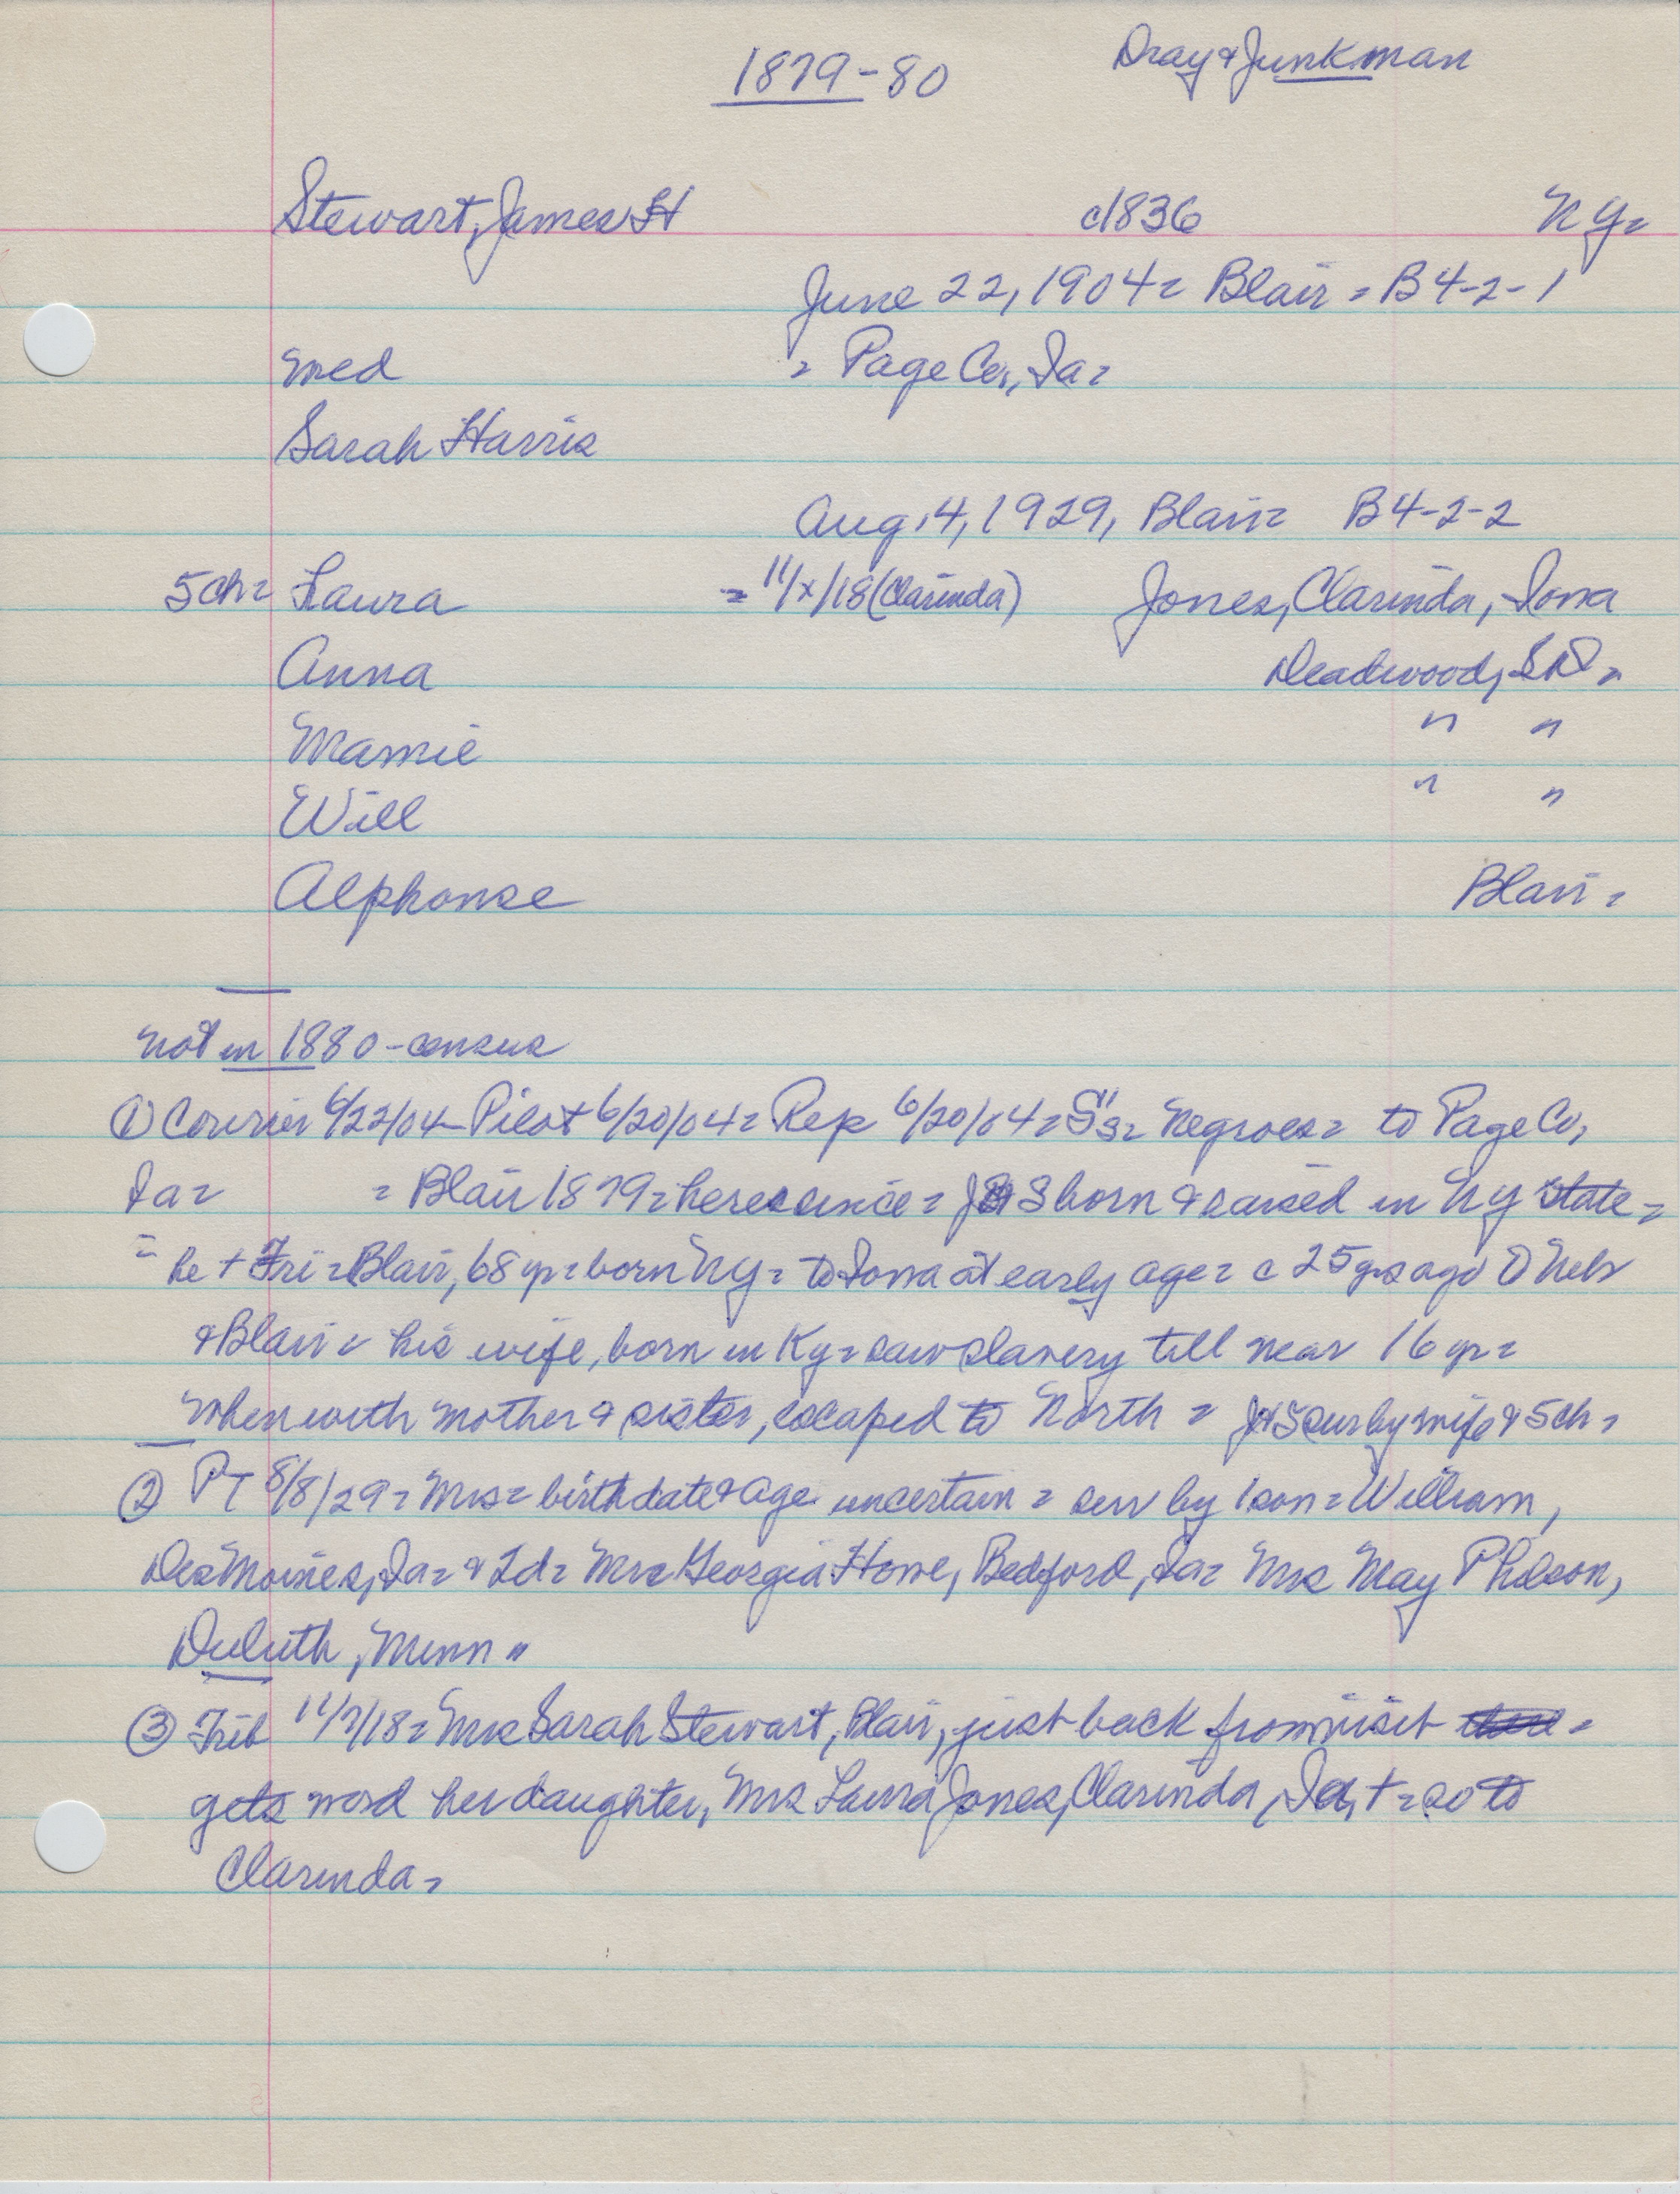 1879-80 Dray & Junkman
Stewart, James H c1836 NY=
June 22, 1904= Blair = B4-2-1
med = Page Co., Ia=
Sarah Harris
Aug. 4, 1929, Blair= B4-2-2
5ch= Laura = 11/x/18 (Clarinda) Jones, Clarinda, Iowa
Anna Deadwood, SD=
Mamie " "
Will " "
Alphonse Blair=
not in 1880-census
① Courier 6/22/04- Pilot 6/20/04= Rep 6/20/04= S's= Negroes= to Page Co,
Ia= = Blair 1879= here since= JHS born & raised in NY state=
= he + Fri= Blair, 68 yr= born NY= to Iowa at early age= c 25 yrs ago Neb
& Blair= his wife, born in Ky= saw slavery till near 16 yr=
when with mother & sister, escaped to North = JHS sur by wife & 5ch=
② PT 8/8/29= Mrs= birthdate & age uncertain = surv by 1 son= William,
Des Moines, Ia= & 2d= Mrs Georgia Howe, Bedford, Ia= Mrs May Philson,
Duluth, Minn "
③ Trib 11/7/18= Mrs Sarah Stewart, Blair, just back from visit =
gets word her daughter, Mrs Laura Jones, Clarinda, Ia, += so to
Clarinda=